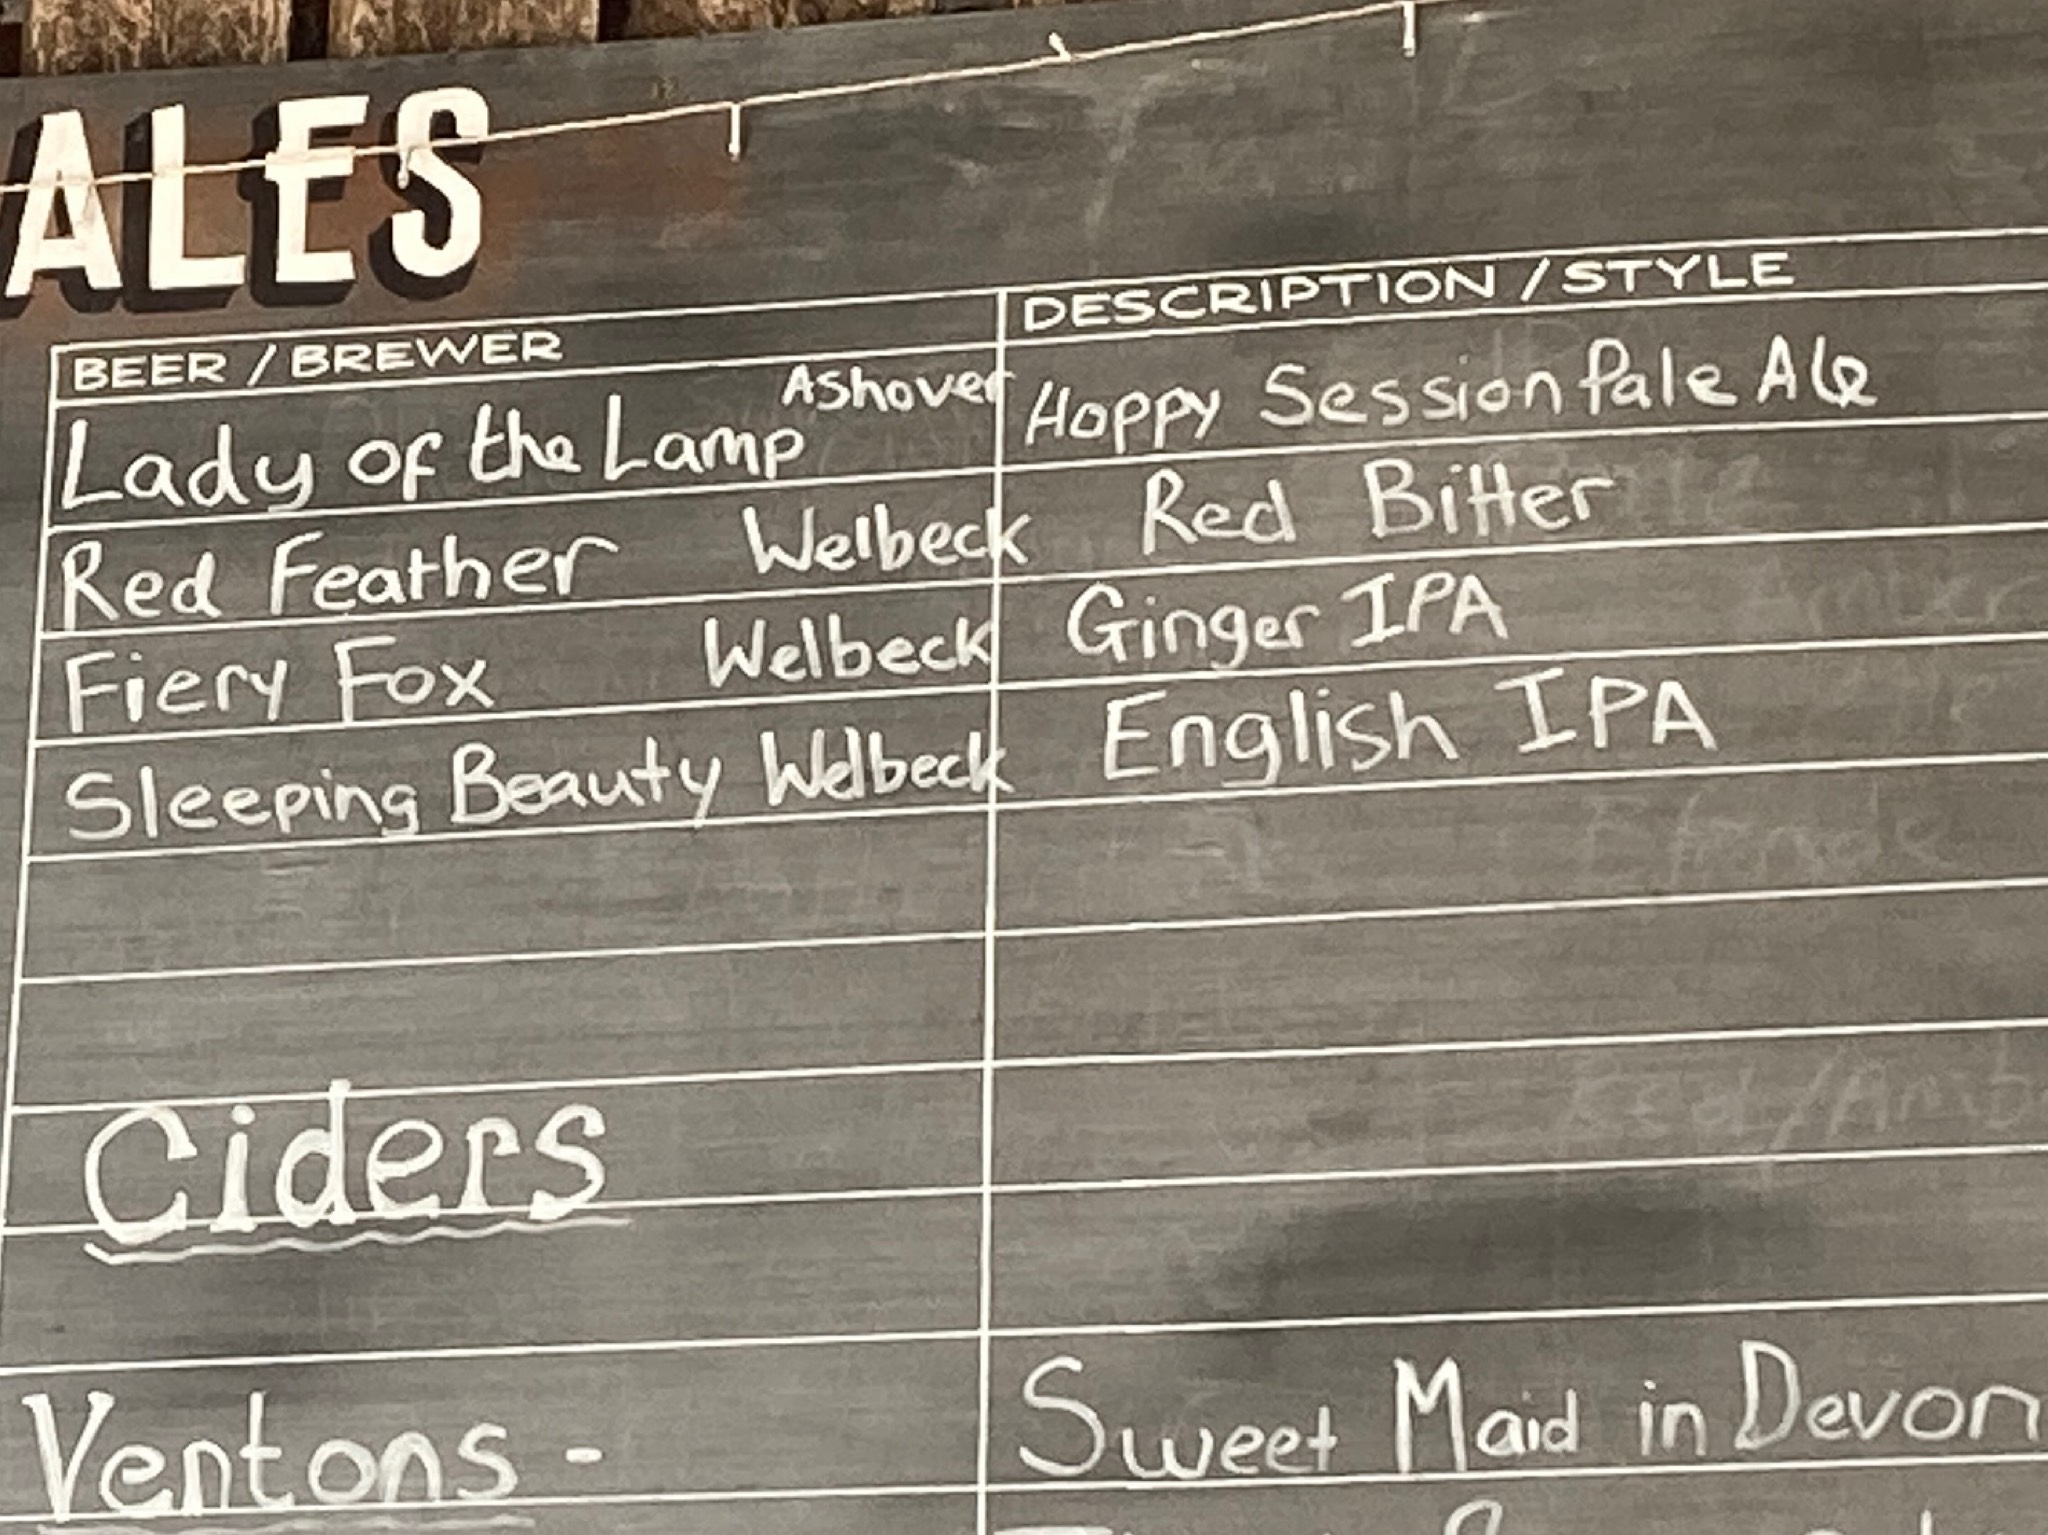 ALES
BEER / BREWER DESCRIPTION / STYLE
Lady of the Lamp Ashover Hoppy Session Pale Ale
Red Feather Welbeck Red Bitter
Fiery Fox Welbeck Ginger IPA
Sleeping Beauty Welbeck English IPA
Ciders
Ventons - Sweet Maid in Devon